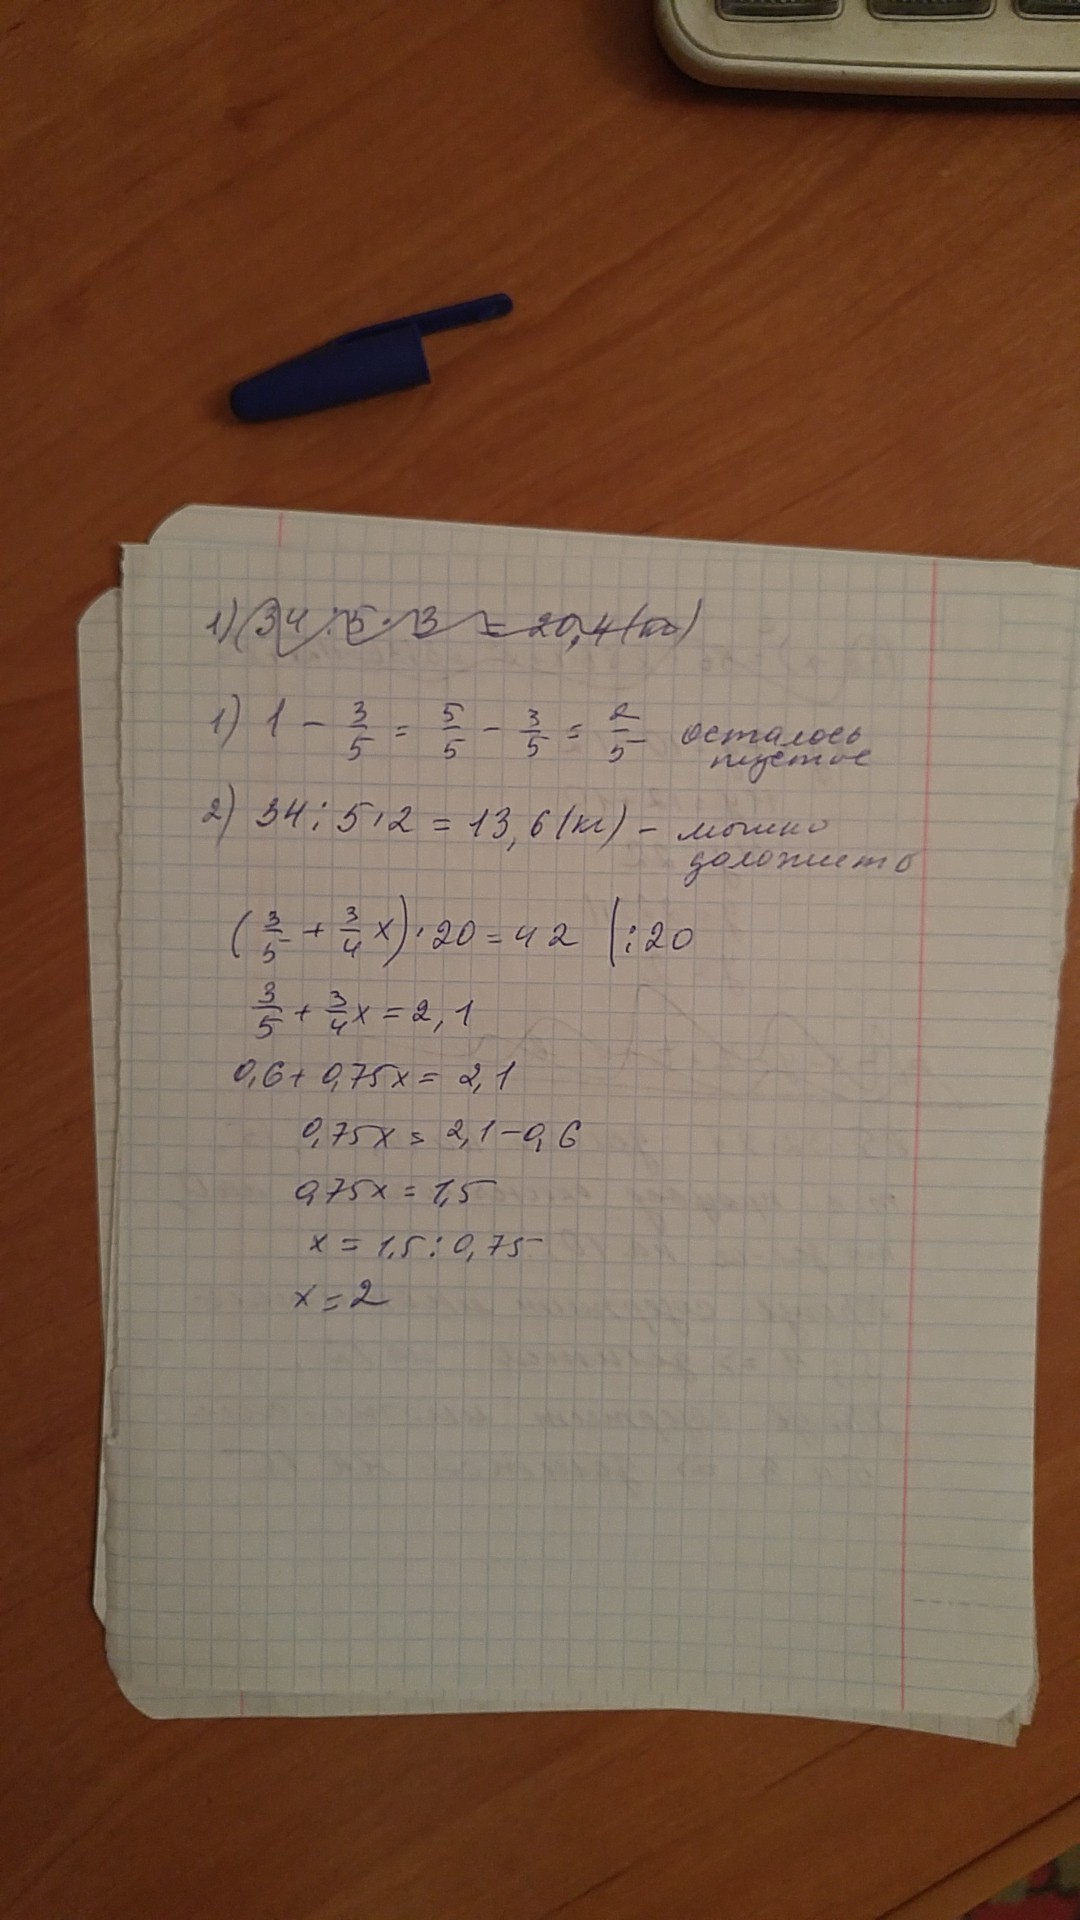 1) 34 : 5 · 3 = 20,4 (кг)
1) 1 - 3/5 = 5/5 - 3/5 = 2/5 осталось
пустое
2) 34 : 5 · 2 = 13,6 (кг) - можно
доложить
(3/5 + 3/4 x) · 20 = 42 | : 20
3/5 + 3/4 x = 2,1
0,6 + 0,75x = 2,1
0,75x = 2,1 - 0,6
0,75x = 1,5
x = 1,5 : 0,75
x = 2